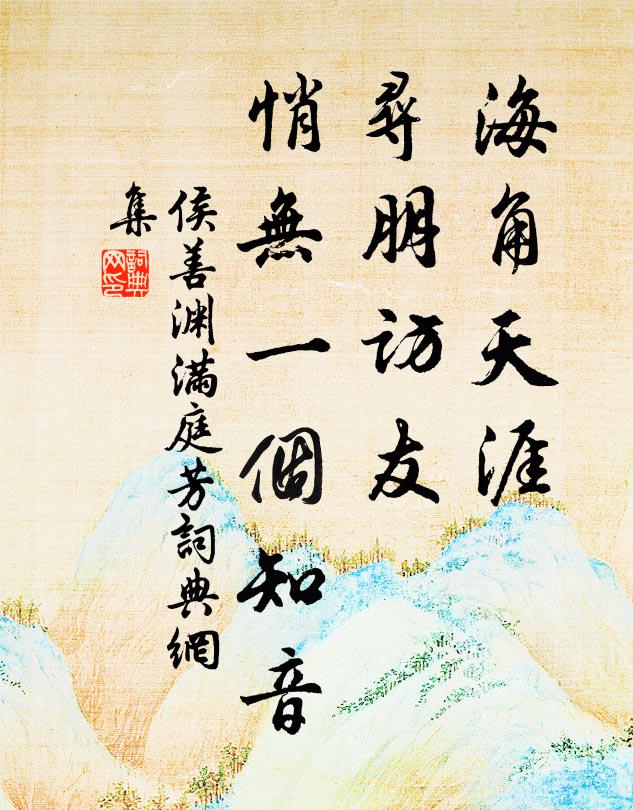 海角天涯
尋朋訪友
悄無一個知音
侯善渊滿庭芳詞典網
集
詞典
网印